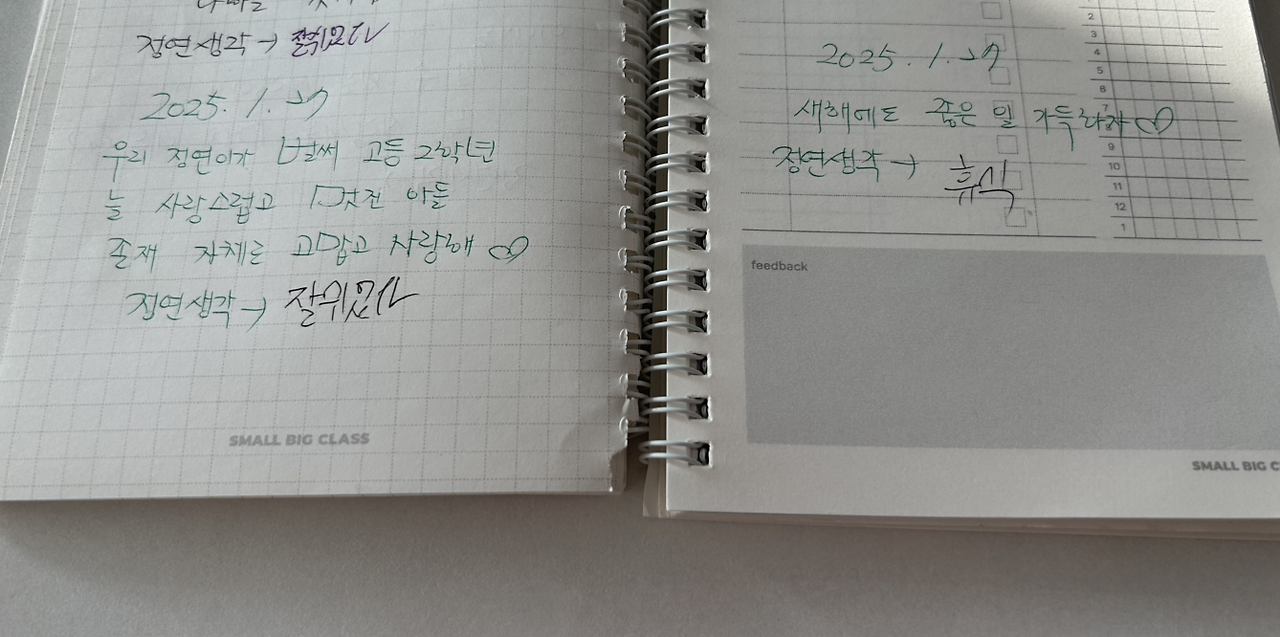 정연생각 → 잘쉬었다
2025. 1. 27
우리 정연이가 벌써 고등 2학년
늘 사랑스럽고 멋진 아들
존재 자체로 고맙고 사랑해 ♡
정연생각 → 잘쉬었다
SMALL BIG CLASS
2
3
4
5
6
7
8
9
10
11
12
1
2025. 1. 27
새해에도 좋은 일 가득하자 ♡
정연생각 → 휴식
feedback
SMALL BIG C